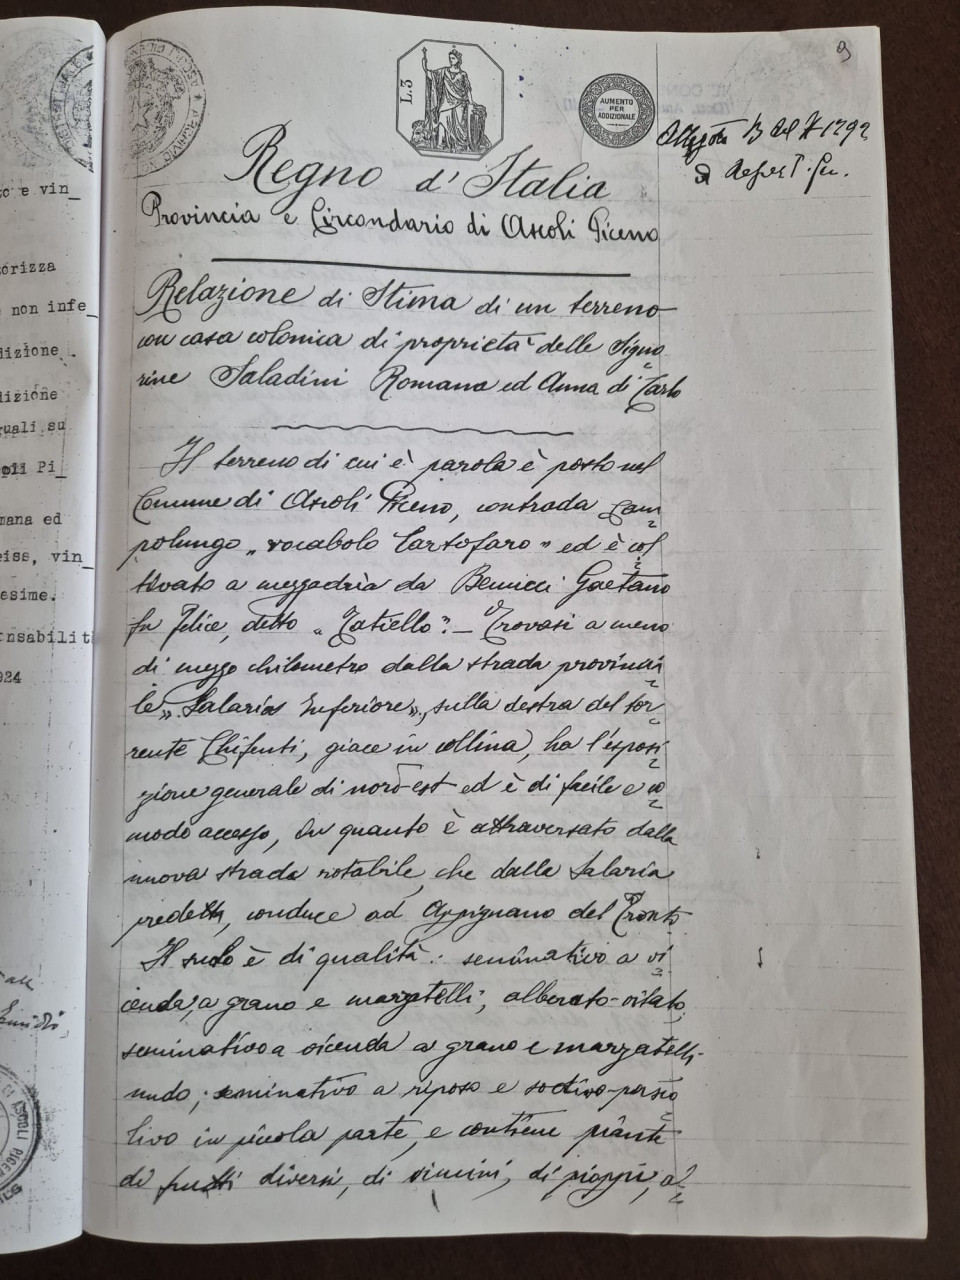 to e vin_
torizza
non infe_
dizione.
dizione
quali su
oli Pi_
mana ed
eiss, vin_
esime.
onsabilit
924
L.3
AUMENTO
PER
ADDIZIONALE
9
Allegato B del N 1292
Regno d'Italia
Provincia e Circondario di Ascoli Piceno
Relazione di Stima di un terreno
con casa colonica di proprietà delle Signo
rine Saladini Romana ed Anna di Carlo
Il terreno di cui è parola è posto nel
Comune di Ascoli Piceno, contrada Cam
polungo „ vocabolo Cartofaro" ed è col
tivato a mezzadria da Gaetano
fu Felice, detto „ Tatiello". — Trovasi a meno
di mezzo chilometro dalla strada provincia
le „ Salaria Inferiore", sulla destra del tor
rente Chifenti, giace in collina, ha l'esposi
zione generale di nord-est ed è di facile e co
modo accesso, in quanto è attraversato dalla
nuova strada rotabile, che dalla Salaria
predetta, conduce ad Appignano del Tronto
Il suolo è di qualità: seminativo a vi
cenda, a grano e marzatelli, alberato-vitato,
seminativo a vicenda a grano e marzatelli
nudo; seminativo a riposo e sodivo-pasco
livo in piccola parte, e contiene piante
di frutti diversi, di vimini, di pioppi, a